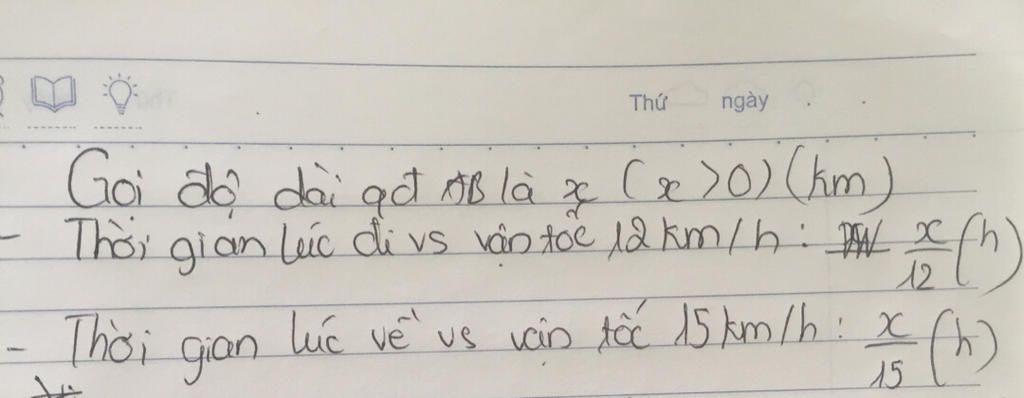 Thứ ngày
Gọi độ dài qđ AB là x (x>0) (km)
- Thời gian lúc đi vs vận tốc 12km/h: x/12 (h)
- Thời gian lúc về vs vận tốc 15km/h: x/15 (h)